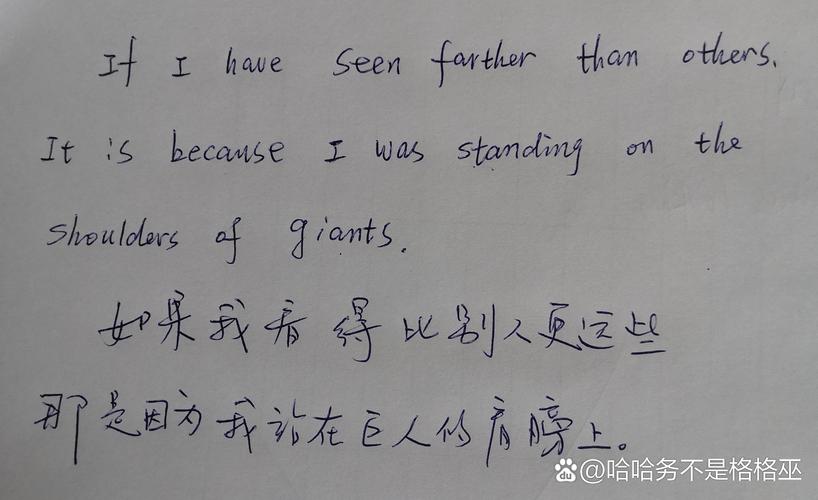 If I have seen farther than others.
It is because I was standing on the
shoulders of giants.
如果我看得比别人更远些
那是因为我站在巨人的肩膀上。
du @哈哈务不是格格巫